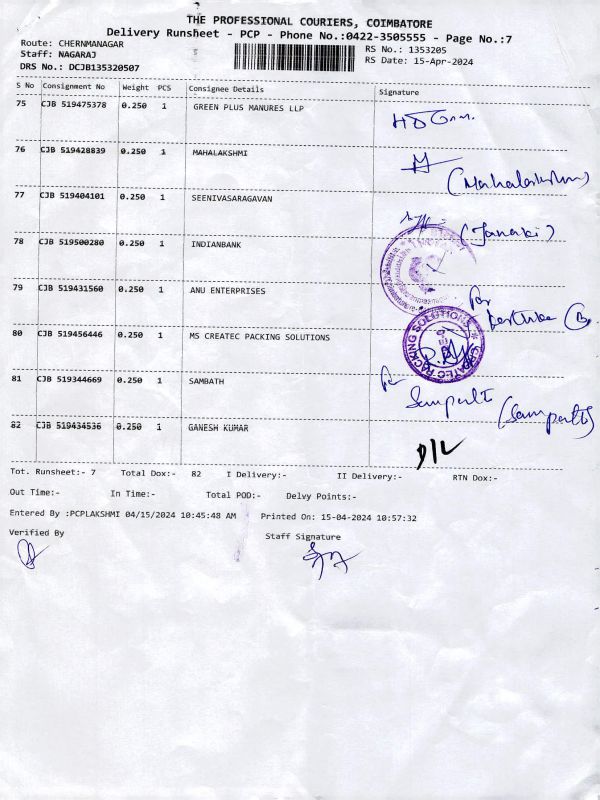 THE PROFESSIONAL COURIERS, COIMBATORE
Delivery Runsheet - PCP - Phone No.:0422-3505555 - Page No.:7
Route: CHERNMANAGAR
Staff: NAGARAJ
DRS No.: DCJB135320507
RS No.: 1353205
RS Date: 15-Apr-2024
S No Consignment No Weight PCS Consignee Details Signature
75 CJB 519475378 0.250 1 GREEN PLUS MANURES LLP
76 CJB 519428839 0.250 1 MAHALAKSHMI
(Mahalakshmi)
77 CJB 519404101 0.250 1 SEENIVASARAGAVAN
(Janaki)
78 CJB 519500280 0.250 1 INDIANBANK
79 CJB 519431560 0.250 1 ANU ENTERPRISES
for
80 CJB 519456446 0.250 1 MS CREATEC PACKING SOLUTIONS
CREATEC PACKING SOLUTIONS
81 CJB 519344669 0.250 1 SAMBATH
for
82 CJB 519434536 0.250 1 GANESH KUMAR
D/L
Tot. Runsheet:- 7 Total Dox:- 82 I Delivery:- II Delivery:- RTN Dox:-
Out Time:- In Time:- Total POD:- Delvy Points:-
Entered By :PCPLAKSHMI 04/15/2024 10:45:48 AM Printed On: 15-04-2024 10:57:32
Verified By Staff Signature